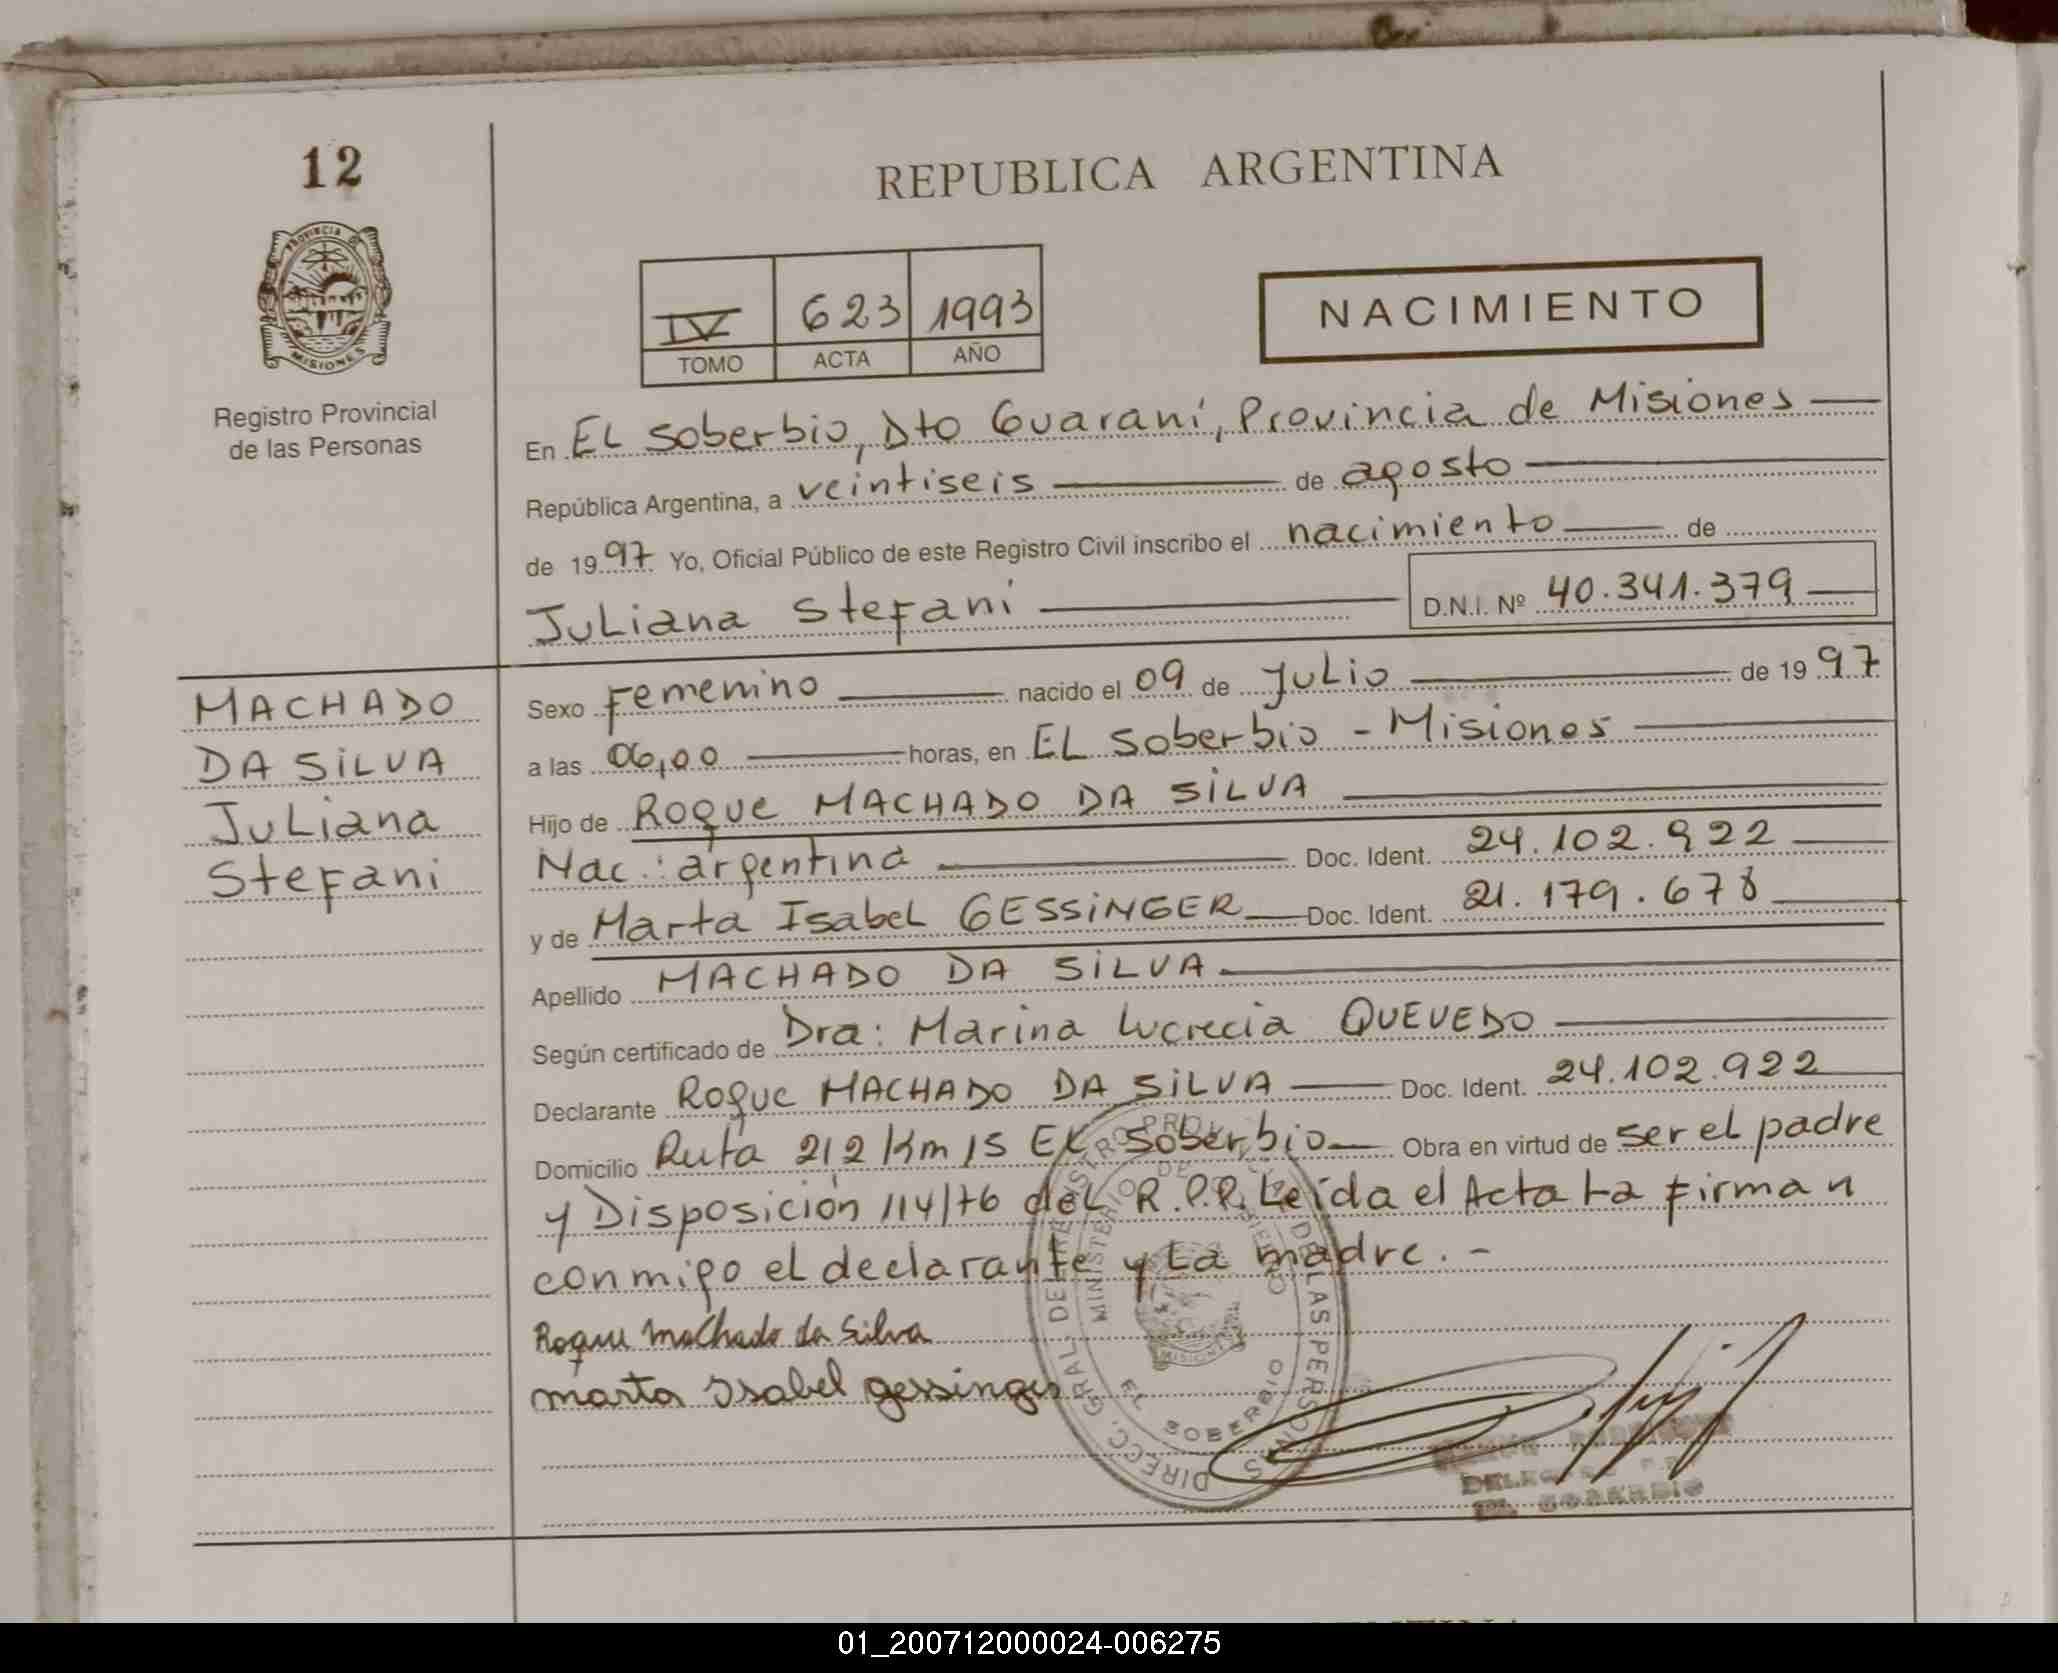 12
PROVINCIA DE
MISIONES
Registro Provincial
de las Personas
REPUBLICA ARGENTINA
IV 623 1993
TOMO ACTA AÑO
NACIMIENTO
En EL Soberbio, Dto Guaraní, Provincia de Misiones
República Argentina, a veintiseis de agosto
de 1997 Yo, Oficial Público de este Registro Civil inscribo el nacimiento de
Juliana Stefani D.N.I. Nº 40.341.379
MACHADO
DA SILVA
Juliana
Stefani
Sexo Femenino nacido el 09 de Julio de 1997
a las 06,00 horas, en EL Soberbio - Misiones
Hijo de Roque MACHADO DA SILVA
Nac: argentina Doc. Ident. 24.102.922
y de Marta Isabel GESSINGER Doc. Ident. 21.179.678
Apellido MACHADO DA SILVA
Según certificado de Dra: Marina Lucrecia QUEVEDO
Declarante Roque MACHADO DA SILVA Doc. Ident. 24.102.922
Domicilio Ruta 212 Km 15 EL Soberbio Obra en virtud de ser el padre
y Disposición 114/76 del R.P.P. Leída el Acta La Firman
conmigo el declarante y La madre.-
Roque Machado da Silva
marta Isabel gessinger
DIRECC. GRAL. DE REGISTRO PROV. DE LAS PERSONAS
MINISTERIO DE
MISIONES
SOBERBIO
EL SOBERBIO
01_200712000024-006275